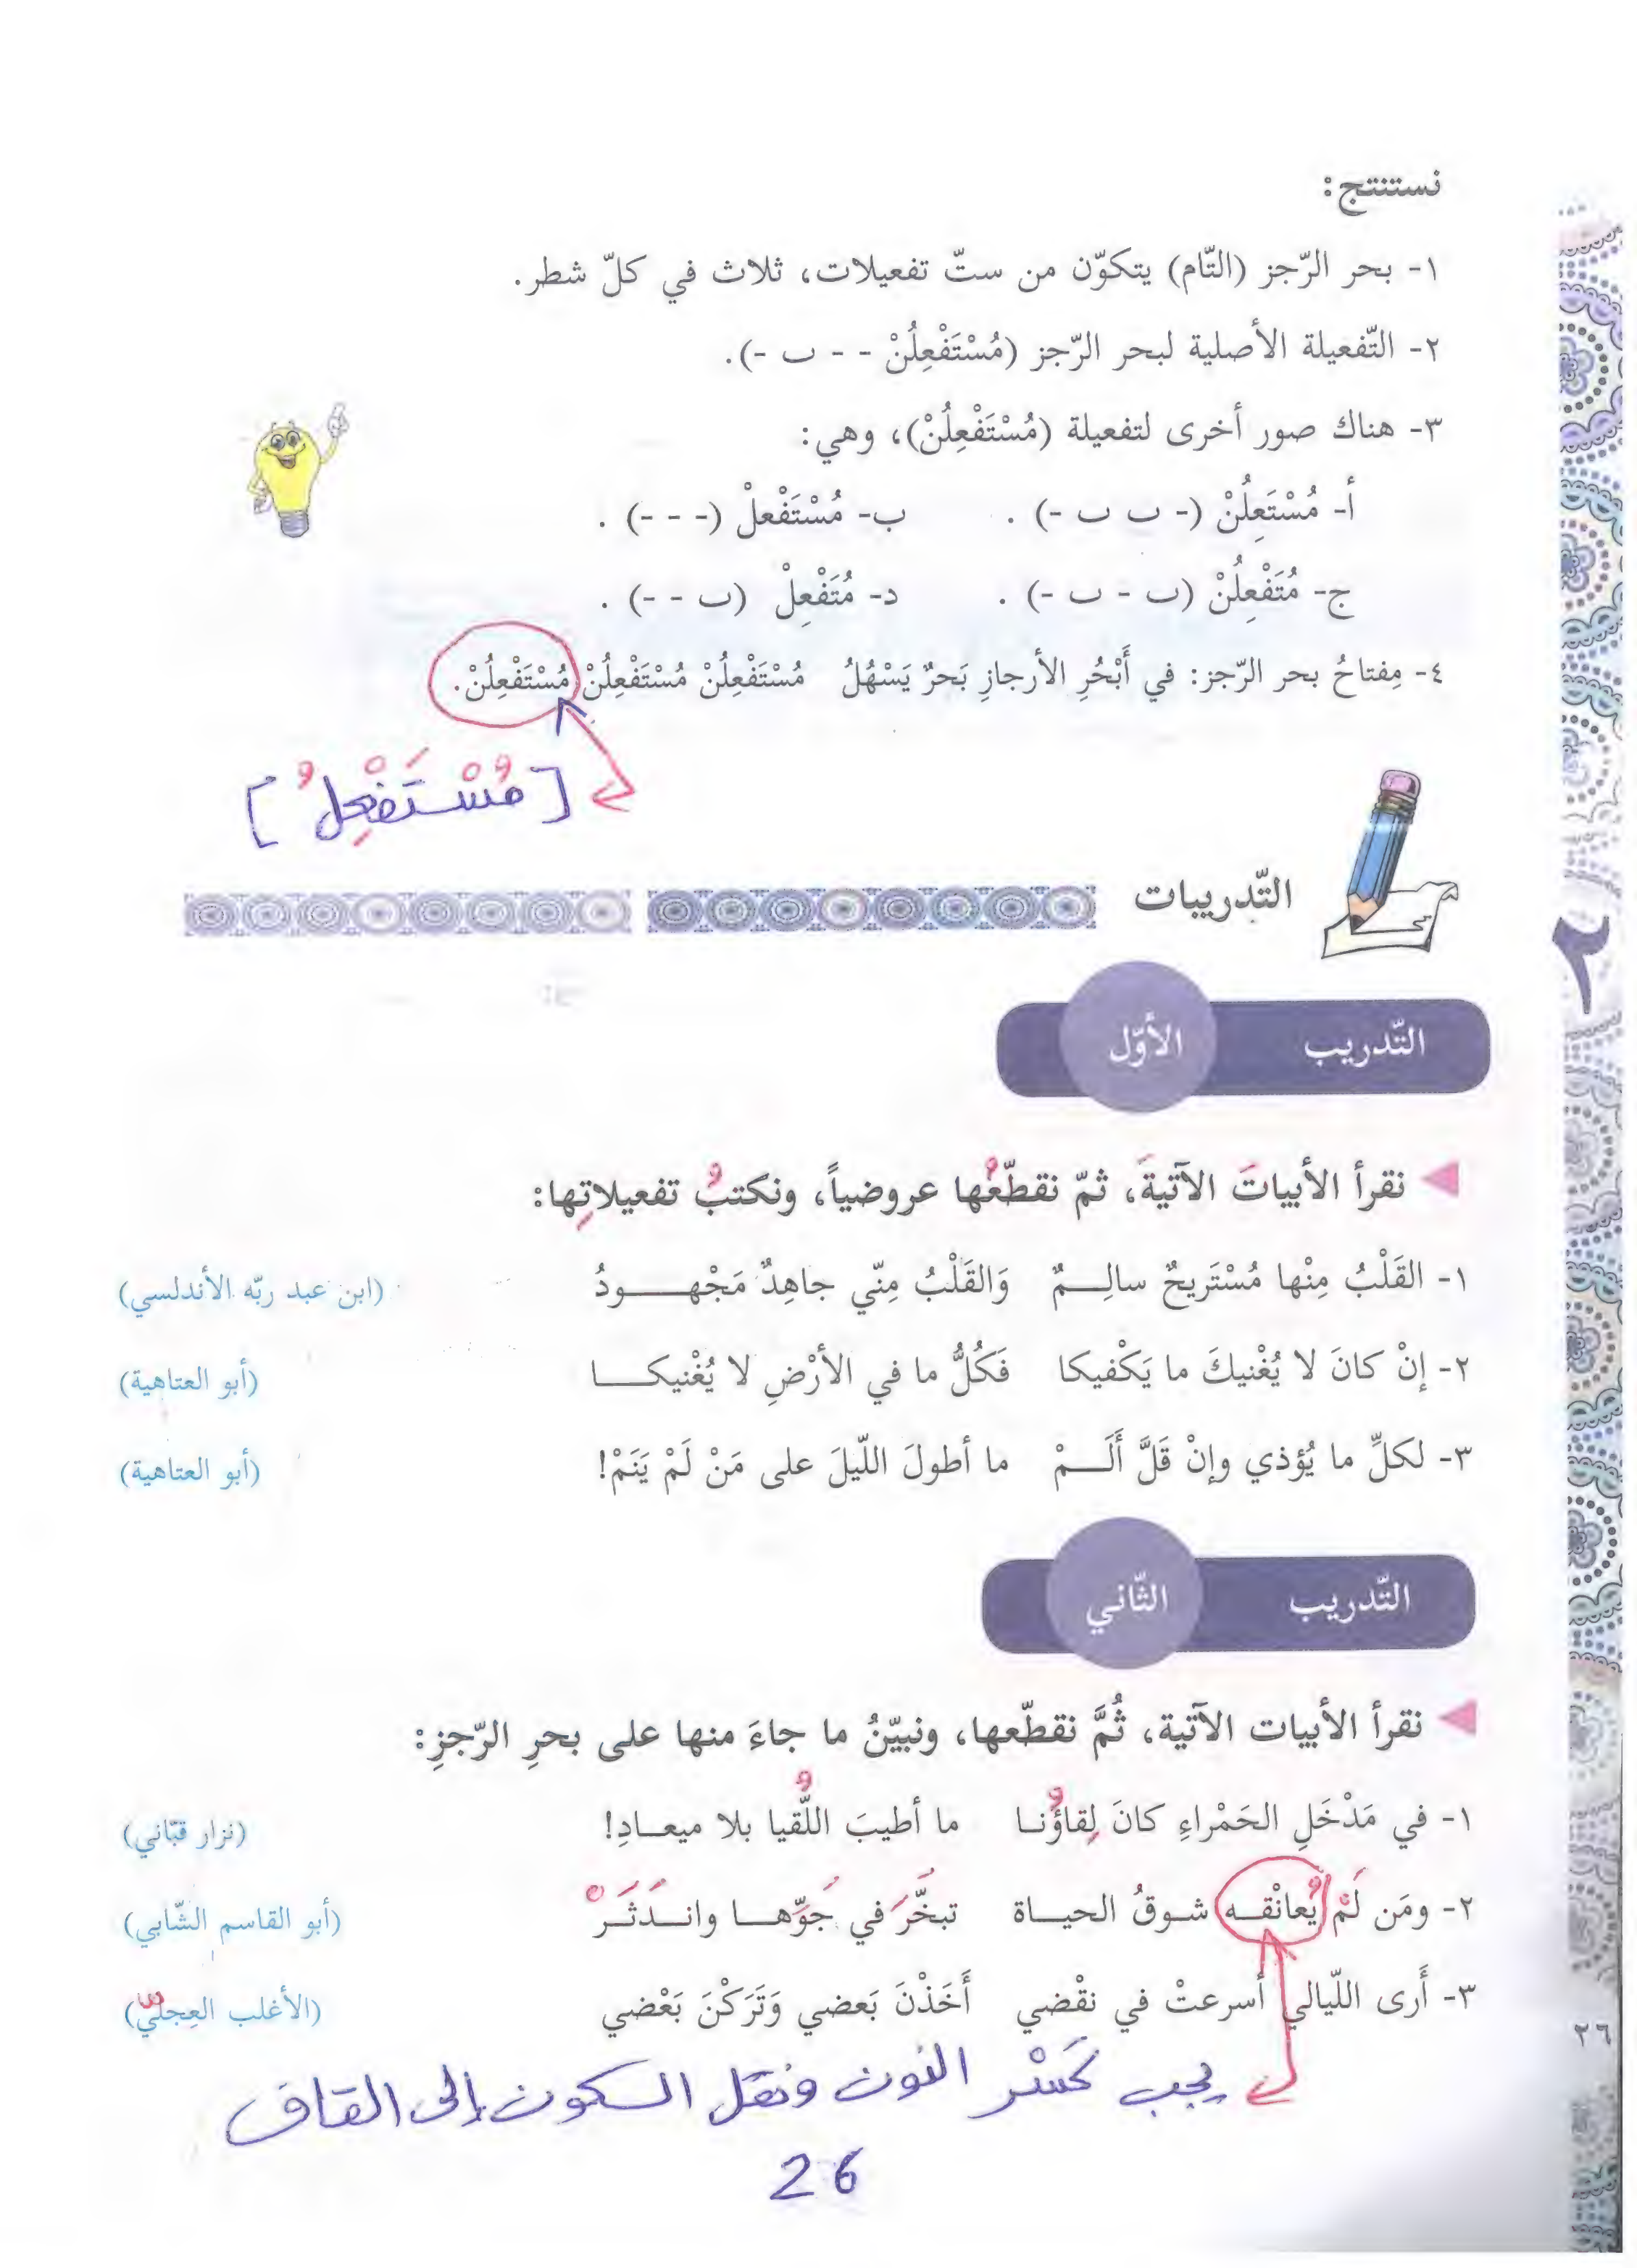 نستنتج:
١- بحر الرّجز (التّام) يتكوّن من ستّ تفعيلات، ثلاث في كلّ شطر.
٢- التّفعيلة الأصلية لبحر الرّجز (مُسْتَفْعِلُنْ - - ب -).
٣- هناك صور أخرى لتفعيلة (مُسْتَفْعِلُنْ)، وهي:
أ- مُسْتَعِلُنْ (- ب ب -) . ب- مُسْتَفْعلْ (- - -) .
ج- مُتَفْعِلُنْ (ب - ب -) . د- مُتَفْعِلْ (ب - -) .
٤- مِفتاحُ بحر الرّجز: في أَبْحُرِ الأرجازِ بَحرٌ يَسْهُلُ مُسْتَفْعِلُنْ مُسْتَفْعِلُنْ مُسْتَفْعِلُنْ.
[مُسْتَفْعِلُ]
التّدريبات
التّدريب الأوّل
نقرأ الأبياتَ الآتيةَ، ثمّ نقطّعُها عروضياً، ونكتبُ تفعيلاتِها:
١- القَلْبُ مِنْها مُسْتَريحٌ سالِـــمٌ وَالقَلْبُ مِنّي جاهِدٌ مَجْهـــــودُ (ابن عبد ربّه الأندلسي)
٢- إنْ كانَ لا يُغْنيكَ ما يَكْفيكا فَكُلُّ ما في الأرْضِ لا يُغْنيكـــا (أبو العتاهية)
٣- لكلِّ ما يُؤذي وإنْ قَلَّ أَلَـــمْ ما أطولَ اللّيلَ على مَنْ لَمْ يَنَمْ! (أبو العتاهية)
التّدريب الثّاني
نقرأ الأبيات الآتية، ثُمَّ نقطّعها، ونبيّنُ ما جاءَ منها على بحرِ الرّجزِ:
١- في مَدْخَلِ الحَمْراءِ كانَ لِقاؤُنـا ما أطيبَ اللُّقيا بلا ميعـادِ! (نزار قبّاني)
٢- ومَن لَمْ يُعانْقــه شـوقُ الحيـاة تبخَّرَ في جَوِّهـا وانـدَثَـرْ (أبو القاسم الشّابي)
٣- أَرى اللّيالي أسرعتْ في نقْضي أَخَذْنَ بَعضي وَتَرَكْنَ بَعْضي (الأغلب العِجليّ)
يجب كَسْر النون ونقل السكون إلى القاف
26
٢
٢٦